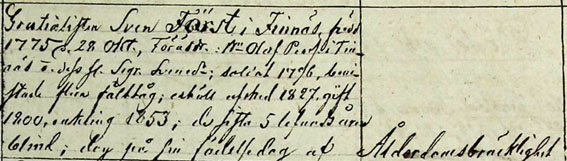 Gratialisten Sven Törst i Finnås, född
1775 28 Okt, Föräldr. Nm Olof Pers i Fin
nås o. dess h. Sigr. Svensdr; soldat 1796, bevi
stade flera fälttåg; erhöll afsked 1827. gift
1800, enkling 1853; de sista 5 lefnads åren
blind; dog på sin födelsedag af Ålderdomsbräcklighet